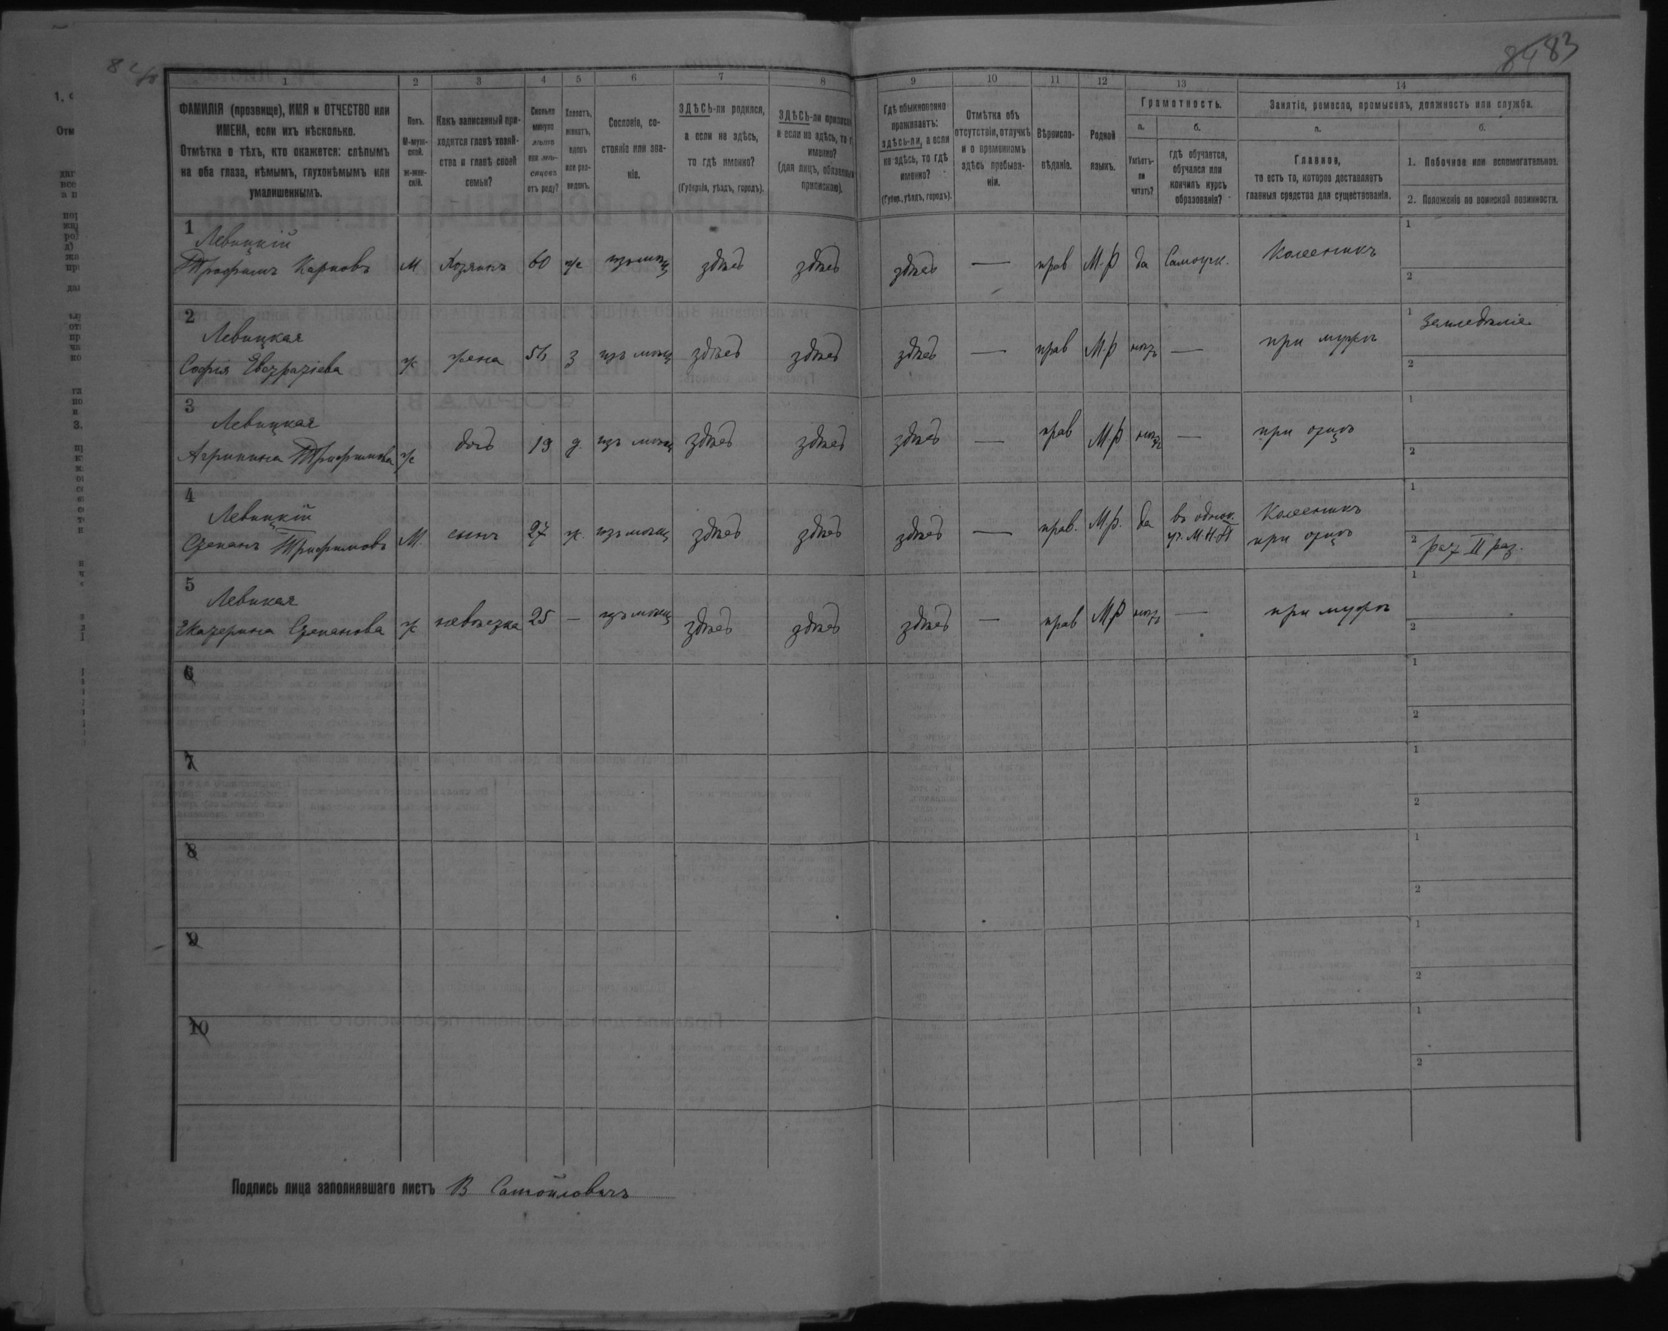 82
84 83
1 2 3 4 5 6 7 8 9 10 11 12 13 14
ФАМИЛІЯ (прозвище), ИМЯ и ОТЧЕСТВО или
ИМЕНА, если ихъ нѣсколько.
Отмѣтка о тѣхъ, кто окажется: слѣпымъ
на оба глаза, нѣмымъ, глухонѣмымъ или
умалишеннымъ.
Полъ.
М-муж-
ской.
Ж-жен-
скій.
Какъ записанный при-
ходится главѣ хозяй-
ства и главѣ своей
семьи?
Сколько
минуло
лѣтъ
или мѣ-
сяцевъ
отъ роду?
Холостъ,
женатъ,
вдовъ
или раз-
веденъ.
Сословіе, со-
стояніе или зва-
ніе.
ЗДѢСЬ-ли родился,
а если не здѣсь,
то гдѣ именно?
(Губернія, уѣздъ, городъ).
ЗДѢСЬ-ли приписанъ,
а если не здѣсь, то гдѣ
именно?
(для лицъ, обязанныхъ
припискою).
Гдѣ обыкновенно
проживаетъ:
здѣсь-ли, а если
не здѣсь, то гдѣ
именно?
(Губер., уѣздъ, городъ).
Отмѣтка объ
отсутствіи, отлучкѣ
и о временномъ
здѣсь пребыва-
ніи.
Вѣроиспо-
вѣданіе.
Родной
языкъ.
Грамотность.
а.
Умѣетъ-
ли
читать?
б.
гдѣ обучается,
обучался или
кончилъ курсъ
образованія?
Занятіе, ремесло, промыселъ, должность или служба.
а.
Главное,
то есть то, которое доставляетъ
главныя средства для существованія.
б.
1. Побочное или вспомогательное.
2. Положеніе по воинской повинности.
1 Левицкій
Трофимъ Карповъ М Хозяинъ 60 ж изъ мѣщ здѣсь здѣсь здѣсь — прав М-Р да Самоуч. Колесникъ 1 2
2 Левицкая
Софія Евстафіева ж жена 56 з изъ мѣщ здѣсь здѣсь здѣсь — прав М-Р нѣтъ — при мужѣ 1 Земледѣліе 2
3 Левицкая
Агрипина Трофимова ж дочь 19 д изъ мѣщ здѣсь здѣсь здѣсь — прав М-Р нѣтъ — при отцѣ 1 2
4 Левицкій
Степанъ Трофимовъ М сынъ 27 ж изъ мѣщ здѣсь здѣсь здѣсь — прав. М-Р. да въ однок. уч. М.Н.П Колесникъ при отцѣ 1 2 рат II раз.
5 Левицкая
Екатерина Степанова ж невѣстка 25 — изъ мѣщ здѣсь здѣсь здѣсь — прав М-Р нѣтъ — при мужѣ 1 2
6 1 2
7 1 2
8 1 2
9 1 2
10 1 2
Подпись лица заполнявшаго листъ В Самойловичъ